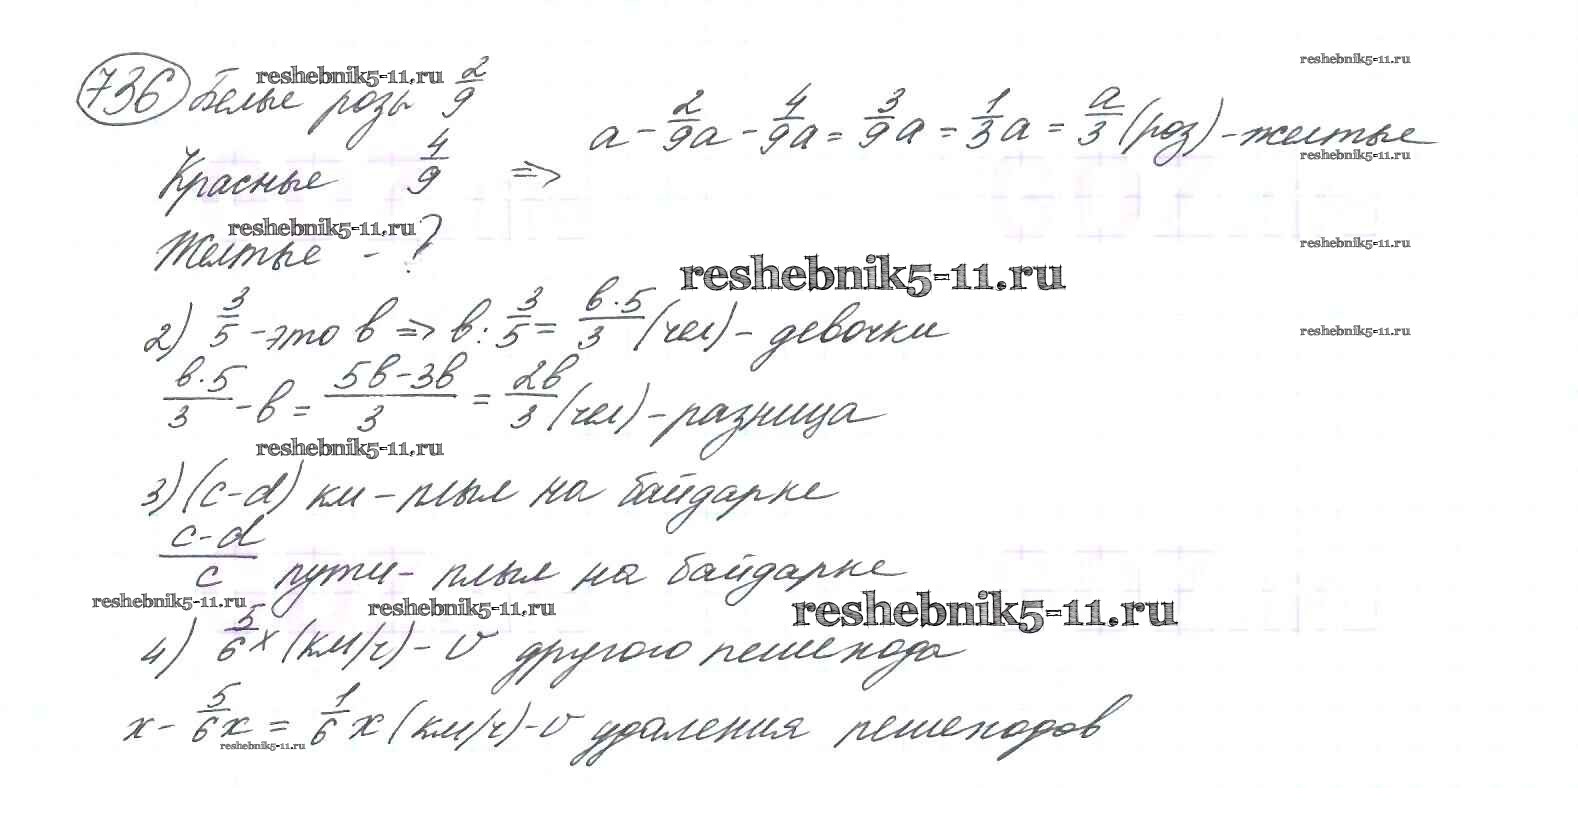 reshebnik5-11.ru
reshebnik5-11.ru
736 Белые розы 2/9
a - 2/9a - 4/9a = 3/9a = 1/3a = a/3 (роз) - желтые
Красные 4/9 =>
reshebnik5-11.ru
reshebnik5-11.ru
Желтые - ?
reshebnik5-11.ru
reshebnik5-11.ru
2) 3/5 - это в => в : 3/5 = в·5/3 (чел) - девочки
reshebnik5-11.ru
в·5/3 - в = 5в-3в/3 = 2в/3 (чел) - разница
reshebnik5-11.ru
3) (c-d) км - плыл на байдарке
c-d/c пути - плыл на байдарке
reshebnik5-11.ru
reshebnik5-11.ru
reshebnik5-11.ru
4) 5/6x (км/ч) - v другого пешехода
x - 5/6x = 1/6x (км/ч) - v удаления пешеходов
reshebnik5-11.ru